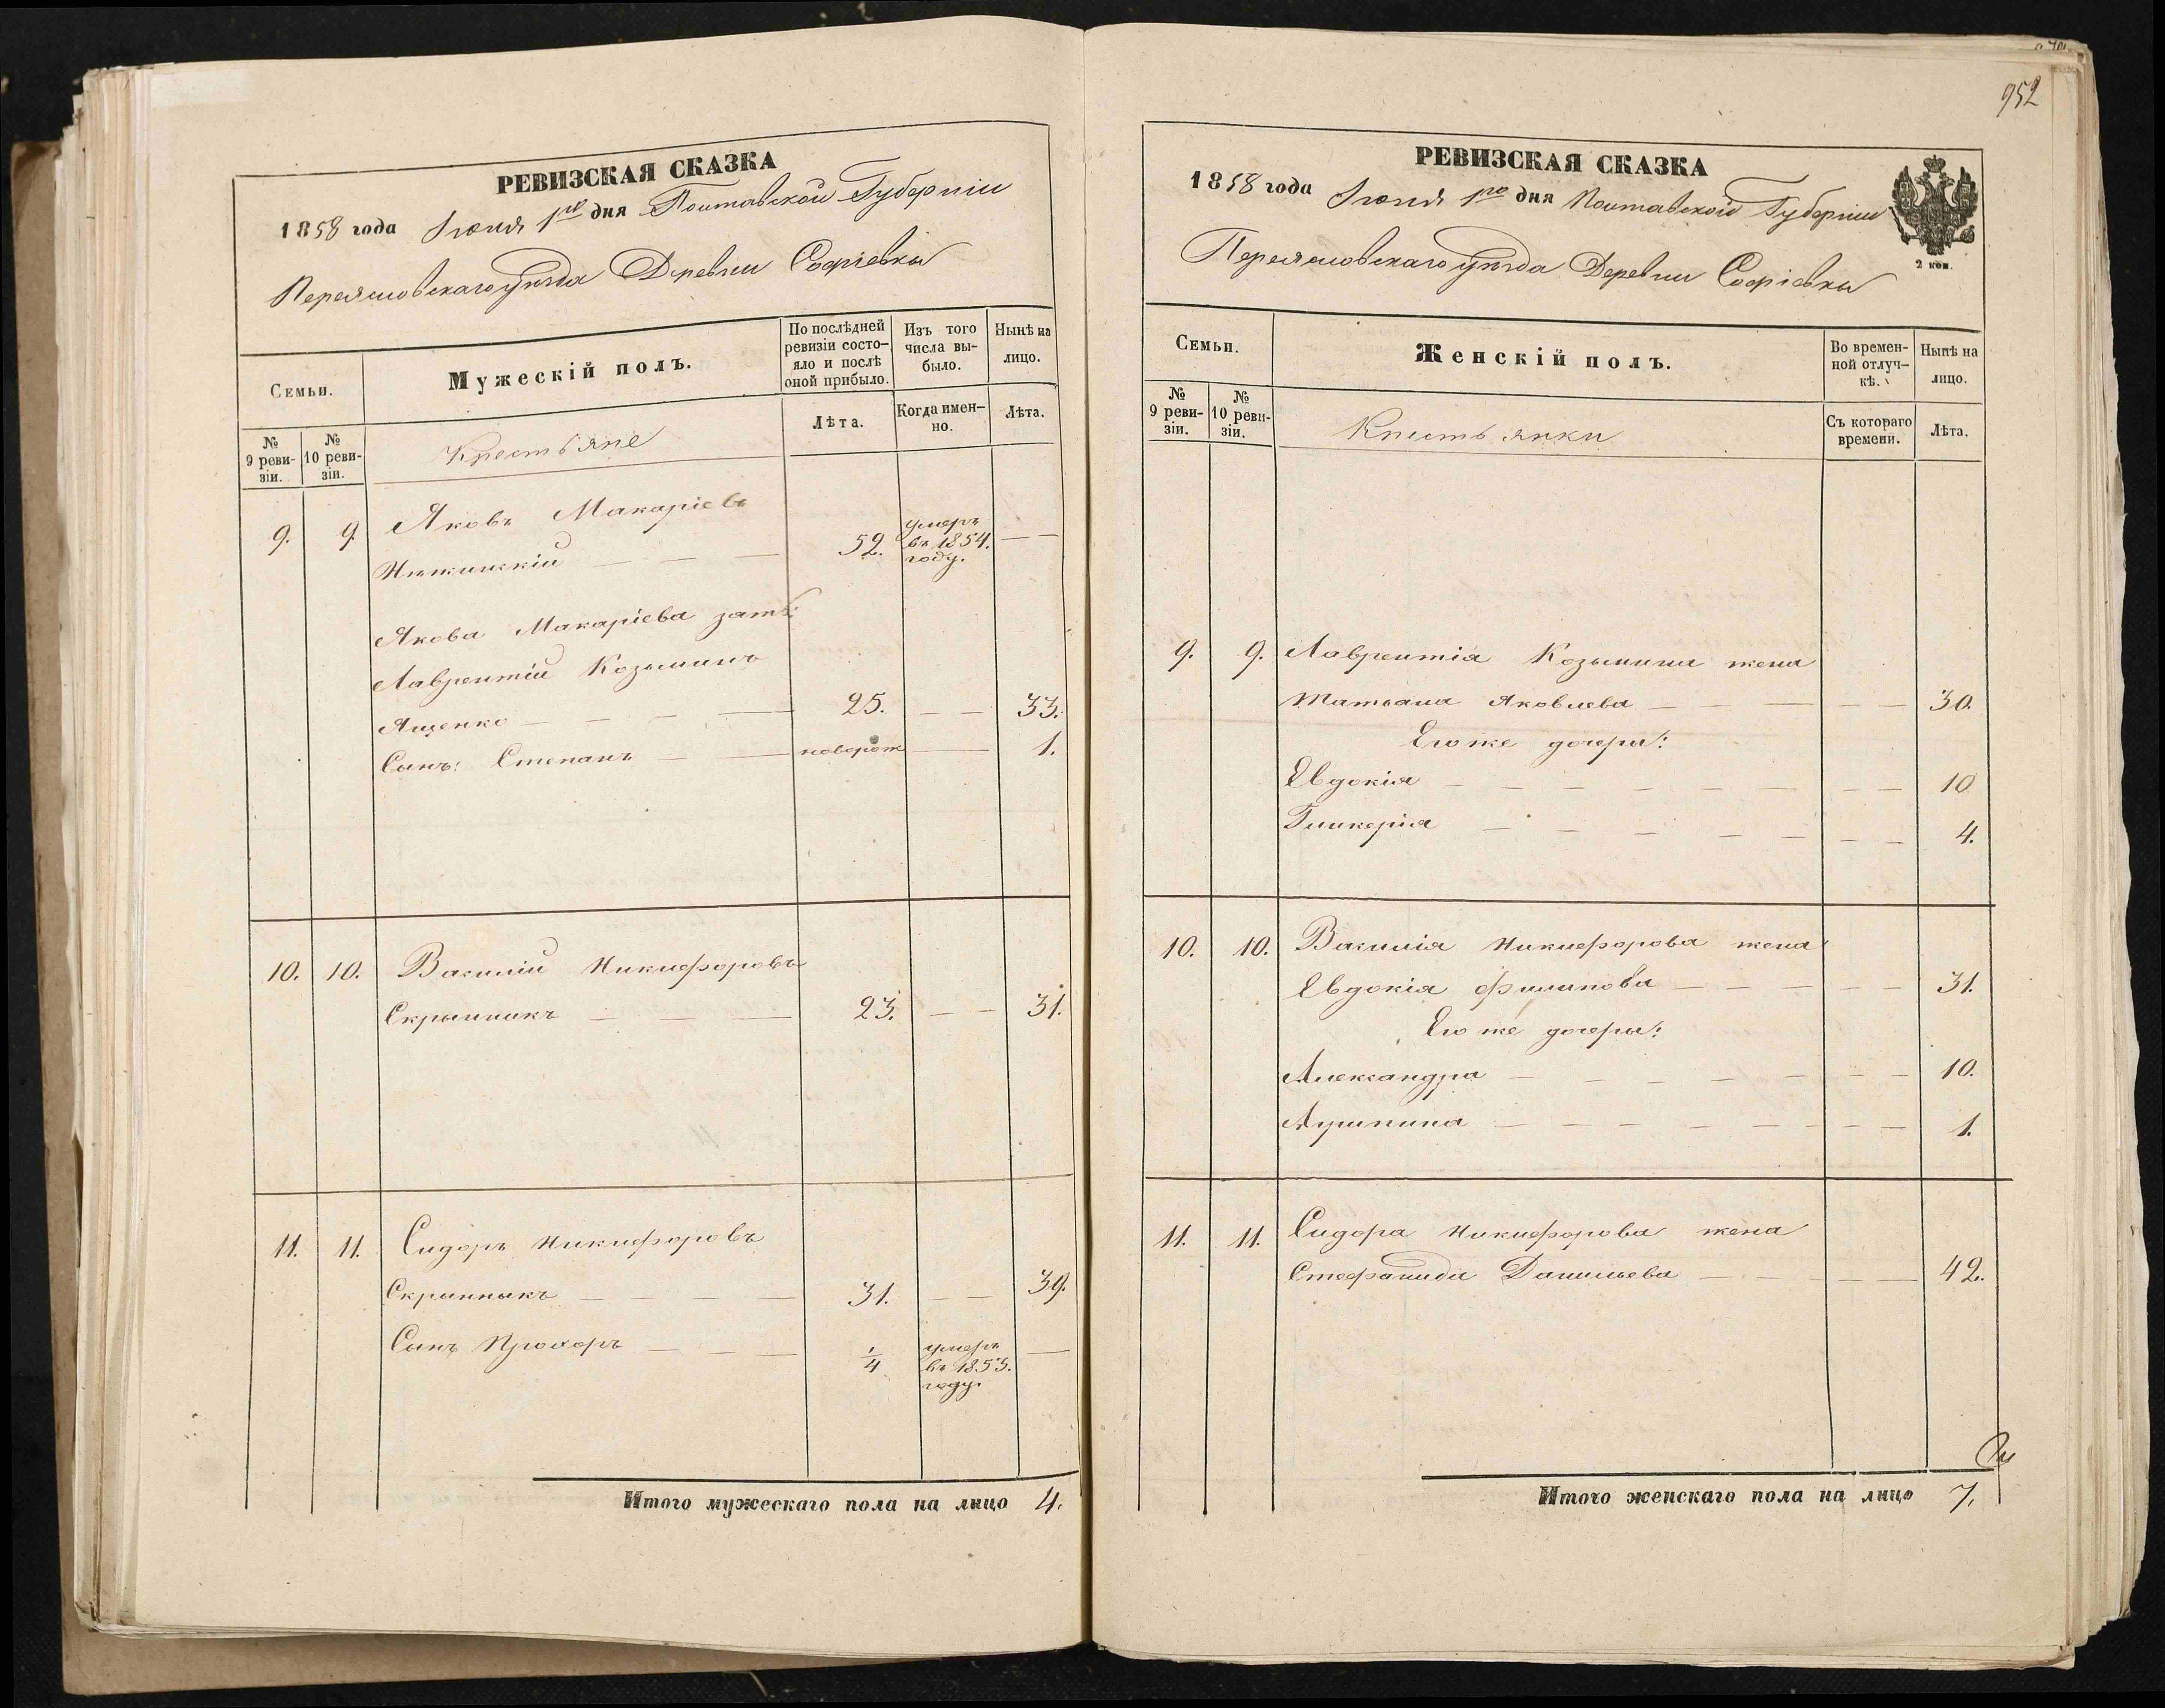 952
РЕВИЗСКАЯ СКАЗКА
1858 года Іюня 1го дня Полтавской Губерніи
Переяславскаго уѣзда Деревни Софіевки
Семьи.
Мужескій полъ.
По послѣдней ревизіи состо-
яло и послѣ оной прибыло.
Изъ того числа вы-
было.
Нынѣ на лицо.
№ 9 реви-
зіи.
№ 10 реви-
зіи.
Крестьяне
Лѣта.
Когда имен-
но.
Лѣта.
9. 9 Яковъ Макаріевъ
Нѣжинскій — — — 52. умеръ въ 1854. году. — —
Якова Макаріева зять:
Лаврентій Козьминъ
Ященко — — — — 25. — — 33.
Сынъ: Степанъ — — новорож — 1.
10. 10. Василій Никифоровъ
Скрынникъ — — — 23. — — 31.
11. 11. Сидоръ Никифоровъ
Скринныкъ — — — — 31. — — 39.
Сынъ Прохоръ — — — 1/4 умеръ въ 1853. году. —
Итого мужескаго пола на лицо 4.
РЕВИЗСКАЯ СКАЗКА
1858 года Іюня 1го дня Полтавской Губерніи
2 коп.
Переяславскаго уѣзда Деревни Софіевки
Семьи.
Женскій полъ.
Во времен-
ной отлуч-
кѣ.
Нынѣ на лицо.
№ 9 реви-
зіи.
№ 10 реви-
зіи.
Крестьянки
Съ котораго времени.
Лѣта.
9. 9. Лаврентія Козьмина жена
Татьяна Яковлева — — — — 30.
Его же дочери:
Евдокія — — — — — — — — 10
Гликерія — — — — — — — — 4.
10. 10. Василія Никифорова жена
Евдокія Филипова — — — — — 31.
Его же дочери:
Александра — — — — — — — 10.
Агрипина — — — — — — — — 1.
11. 11. Сидора Никифорова жена
Стефанида Данильева — — — — 42.
Итого женскаго пола на лицо 7.